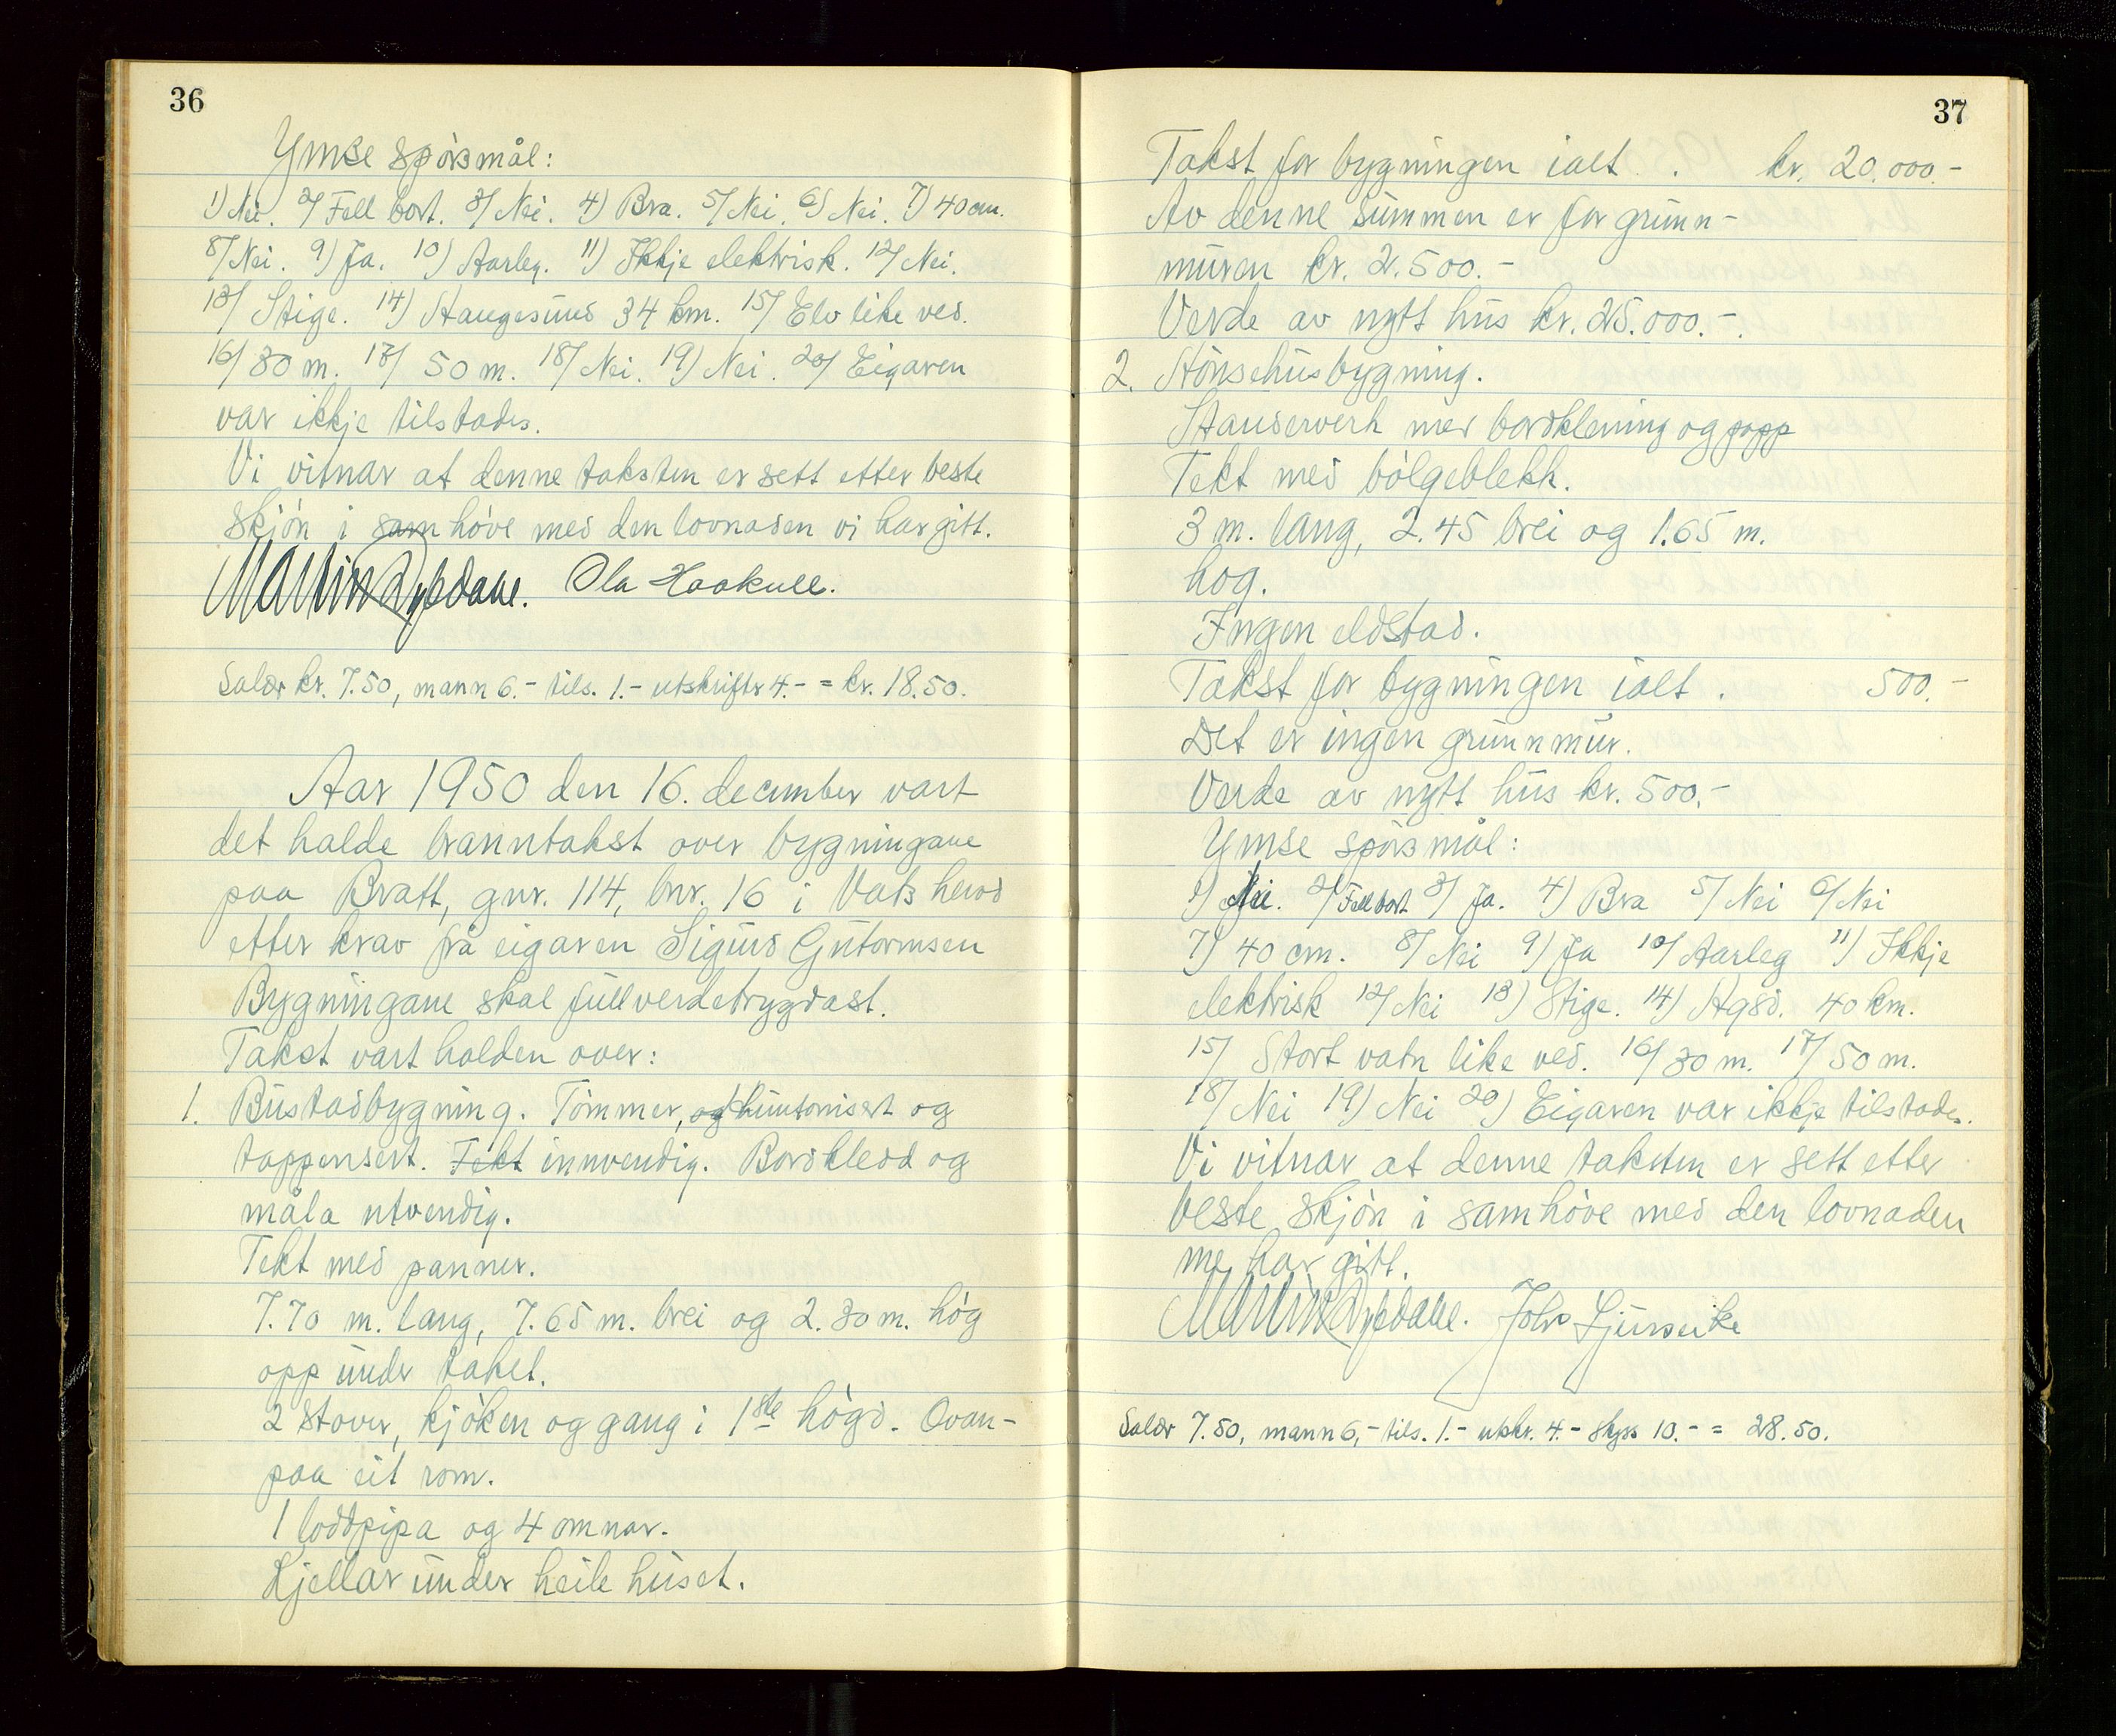 36
Ymse spörsmål:
1) Nei. 2/ Fell bort. 3/ Nei. 4) Bra. 5/ Nei. 6) Nei. 7) 40 cm.
8/ Nei. 9) Ja. 10) Aarleg. 11) Ikkje elektrisk. 12/ Nei.
13/ Stige. 14) Haugesund 34 km. 15/ Elv like ved.
16/ 30 m. 17/ 50 m. 18/ Nei. 19) Nei. 20/ Eigaren
var ikkje tilstades.
Vi vitnar at denne taksten er sett etter beste
skjön i samhöve med den lovnaden vi har gitt.
Martin Dybdahl. Ola Haakull.
Salær kr. 7.50, mann 6.- tils. 1.- utskriftr 4.- = kr. 18.50.
Aar 1950 den 16. december vart
det halde branntakst over bygningane
paa Bratt, gnr. 114, bnr. 16 i Vats herod
etter krav frå eigaren Sigurd Gutormsen
Bygningane skal fullverdetrygdast.
Takst vart halden over:
1. Bustadbygning. Tömmer, og huntonisert og
tappensert. Tekt innvendig. Bordkledd og
måla utvendig.
Tekt med panner.
7.70 m. lang, 7.65 m. brei og 2.30 m. hög
opp under taket.
2 stover, kjöken og gang i 1ste högd. Ovan-
paa eit rom.
1 loddpipa og 4 omnar.
Kjellar under heile huset.
37
Takst for bygningen ialt . kr. 20.000.-
Av denne summen er for grunn-
muren kr. 2.500.-
Verde av nytt hus kr. 25.000.-.
2. Hönsehusbygning.
Standerverk med bordklening og papp
Tekt med bölgeblekk.
3 m. lang, 2.45 brei og 1.65 m.
hog.
Ingen eldstad.
Takst for bygningen ialt . 500.-
Det er ingen grunnmur.
Verde av nytt hus kr. 500.-
Ymse spörsmål:
1) Nei. 2/ Fell bort 3/ Ja. 4) Bra 5/ Nei 6/ Nei
7) 40 cm. 8/ Nei 9) Ja 10/ Aarleg 11) Ikkje
elektrisk 12/ Nei 13) Stige. 14) Hgsd. 40 km.
15/ Stort vatn like ved. 16/ 30 m. 17/ 50 m.
18/ Nei 19) Nei 20) Eigaren var ikkje tilstades.
Vi vitnar at denne taksten er sett etter
beste skjön i samhöve med den lovnaden
me har gitt.
Martin Dybdahl.
Salær 7.50, mann 6,- tils. 1.- utskr. 4.- skyss 10.- = 28.50.